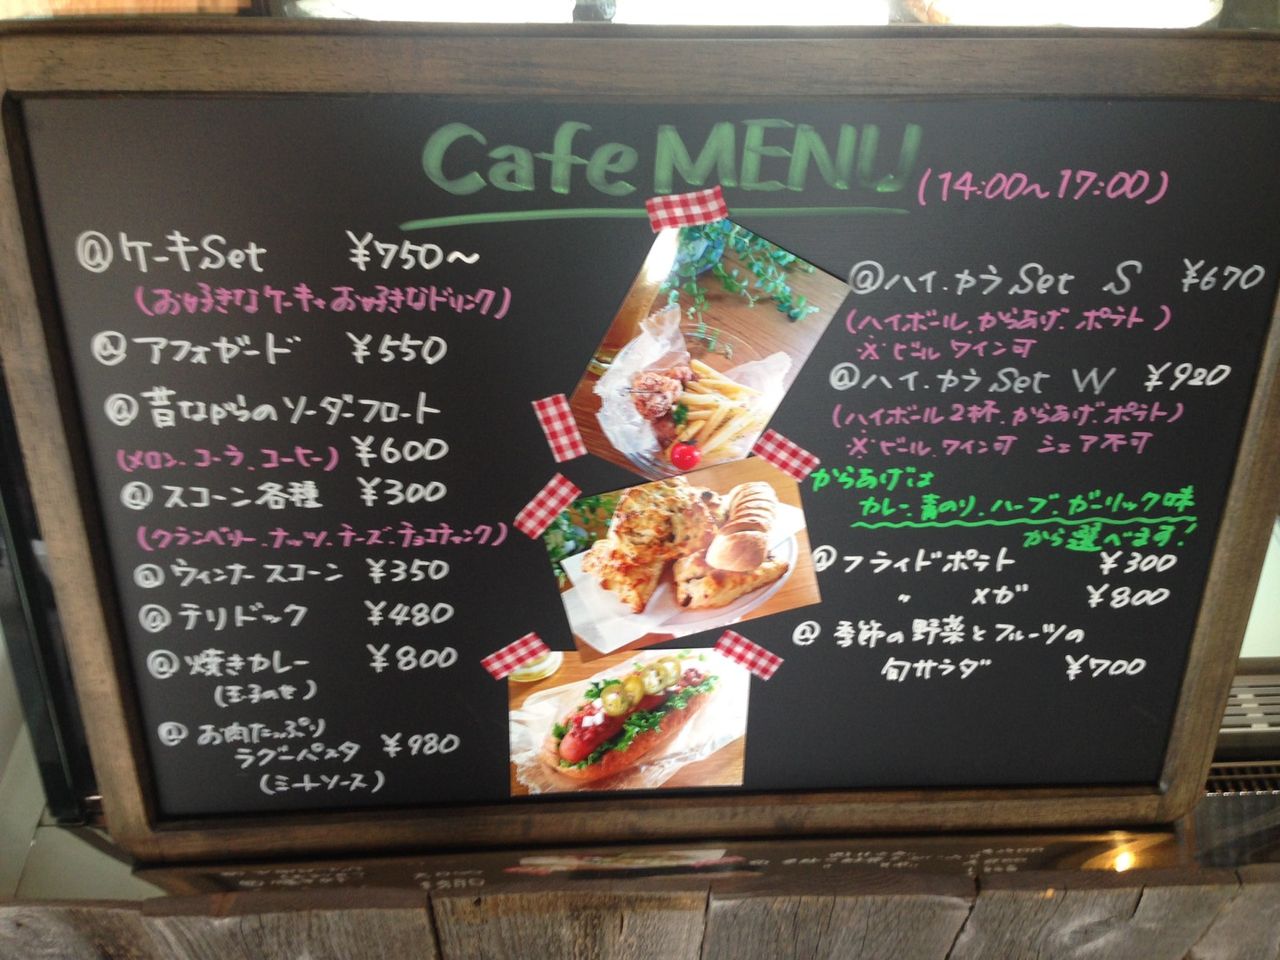 Cafe MENU (14:00〜17:00)
@ケーキSet ¥750〜
(お好きなケーキ+お好きなドリンク)
@アフォガード ¥550
@昔ながらのソーダーフロート
(メロン.コーラ.コーヒー) ¥600
@スコーン各種 ¥300
(クランベリー.ナッツ.チーズ.チョコチャンク)
@ウィンナースコーン ¥350
@テリドック ¥480
@焼きカレー ¥800
(玉子のせ)
@お肉たっぷり
ラグーパスタ ¥980
(ミートソース)
@ハイ.カラSet S ¥670
(ハイボール.からあげ.ポテト)
※ビール ワイン可
@ハイ.カラSet W ¥920
(ハイボール2杯.からあげ.ポテト)
※ビール.ワイン可 シェア不可
からあげは
カレー.青のり.ハーブ.ガーリック味
から選べます!
@フライドポテト ¥300
〃 メガ ¥800
@季節の野菜とフルーツの
旬サラダ ¥700